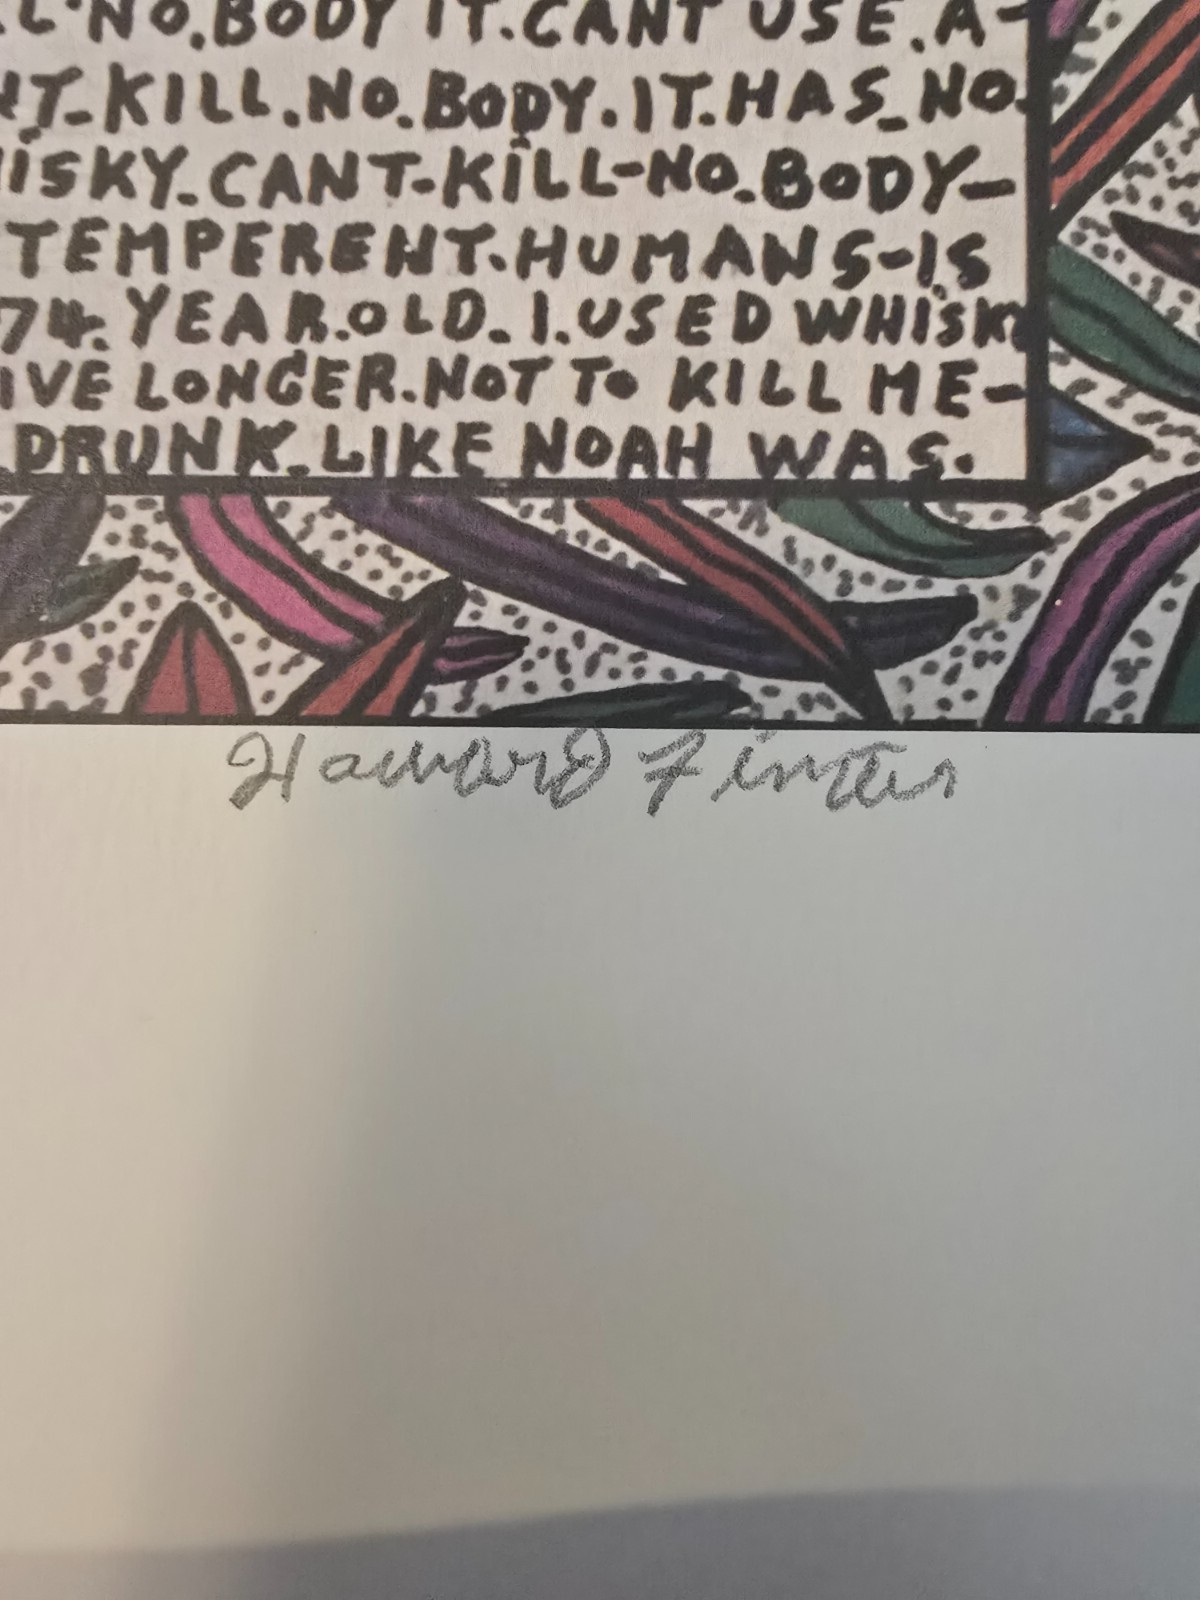 NO.BODY IT.CANT USE.A-
KILL.NO.BODY.IT.HAS_NO.
CANT-KILL-NO.BODY-
TEMPERENT.HUMANS-IS
74. YEAR.OLD.I.USED WHISK
LONGER.NOT TO KILL ME-
DRUNK.LIKE NOAH WAS.
Howard Finster